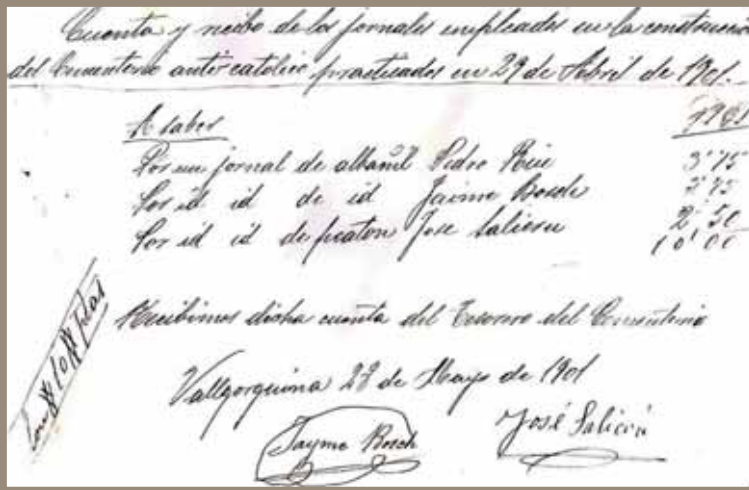 Cuenta y recibo de los jornales empleados en la construccion
del Cementerio anti-catolico practicados en 29 de Abril de 1901.
A saber
Por un jornal de albañil Pedro 3'75
Por id id de id Jaime Bosch 3'75
Por id id de peaton Jose Salicru 2'50
10'00
Recibimos dicha cuenta del Tesorero del Cementerio
Vallgorguina 28 de Mayo de 1901
Son #10# Ptas
Jayme Bosch
José Salicrú